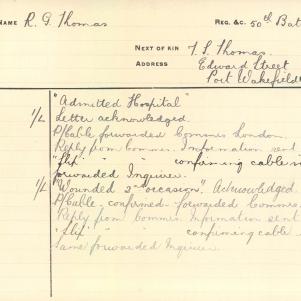 NAME R. G. Thomas REG. &C. 50th Bat
NEXT OF KIN T. S. Thomas.
ADDRESS Edward Street
Port Wakefield
1/L "Admitted Hospital"
Letter acknowledged.
P/Cable forwarded Commes London.
Reply from Commes. Information sent
" " confirming cable
forwarded Inquirer.
1/L "Wounded 2nd occasion". Acknowledged.
P/Cable - confirmed - forwarded Commes
Reply from Commes. Information sent
" " confirming cable
same forwarded Inquirer